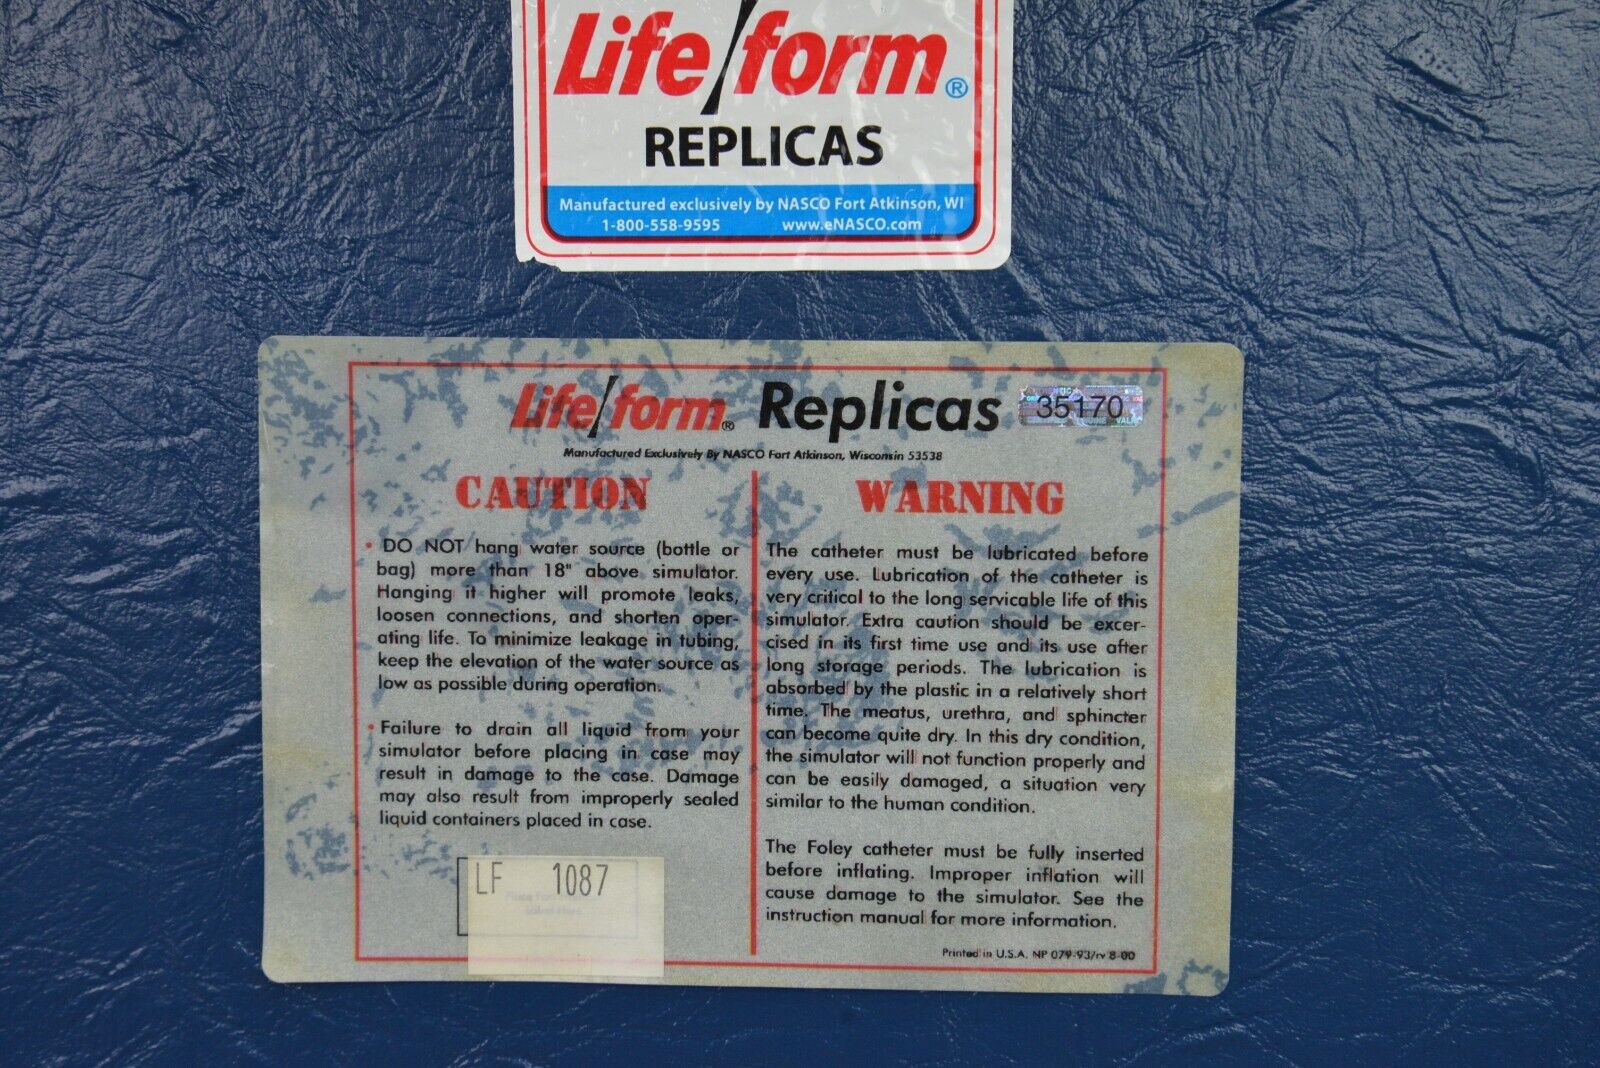 Life/form®
REPLICAS
Manufactured exclusively by NASCO Fort Atkinson, WI
1-800-558-9595 www.eNASCO.com
Life/form® Replicas
35170
Manufactured Exclusively By NASCO Fort Atkinson, Wisconsin 53538
CAUTION
• DO NOT hang water source (bottle or
bag) more than 18" above simulator.
Hanging it higher will promote leaks,
loosen connections, and shorten oper-
ating life. To minimize leakage in tubing,
keep the elevation of the water source as
low as possible during operation.
• Failure to drain all liquid from your
simulator before placing in case may
result in damage to the case. Damage
may also result from improperly sealed
liquid containers placed in case.
LF 1087
WARNING
The catheter must be lubricated before
every use. Lubrication of the catheter is
very critical to the long servicable life of this
simulator. Extra caution should be excer-
cised in its first time use and its use after
long storage periods. The lubrication is
absorbed by the plastic in a relatively short
time. The meatus, urethra, and sphincter
can become quite dry. In this dry condition,
the simulator will not function properly and
can be easily damaged, a situation very
similar to the human condition.
The Foley catheter must be fully inserted
before inflating. Improper inflation will
cause damage to the simulator. See the
instruction manual for more information.
Printed in U.S.A. NP 079-93/rv 8-00